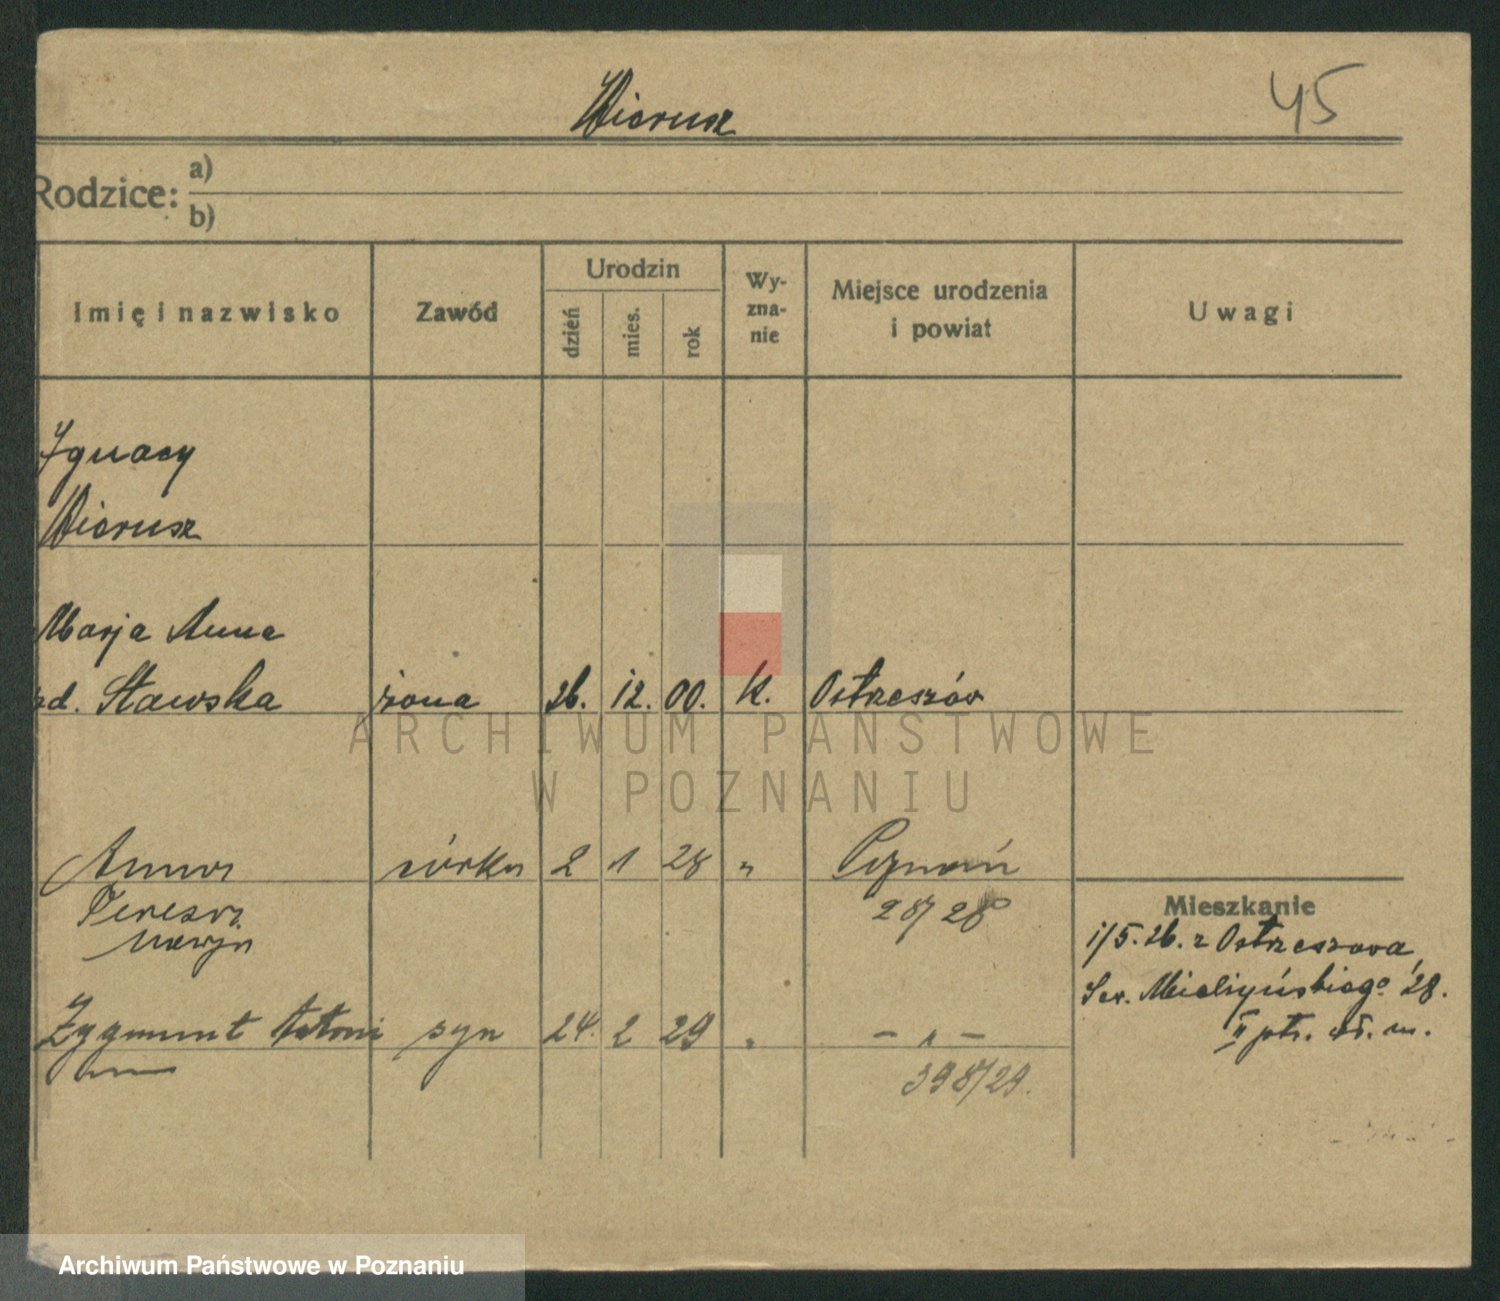 Wierusz
45
Rodzice: a)
b)
Imię i nazwisko
Zawód
Urodzin
dzień
mies.
rok
Wy-
zna-
nie
Miejsce urodzenia
i powiat
Uwagi
Ignacy
Wierusz
Marja Anna
zd. Stawska żona 26. 12. 00. k. Ostrzeszów
Anna córka 2 1 28 " Poznań
Teresa 28/28
Marja
Mieszkanie
1/5.26. z Ostrzeszowa,
Sew. Mielżyńskiego 28.
II ptr. m.
Zygmunt Antoni syn 24. 2 29 " – " –
398/29.
ARCHIWUM PAŃSTWOWE
W POZNANIU
Archiwum Państwowe w Poznaniu